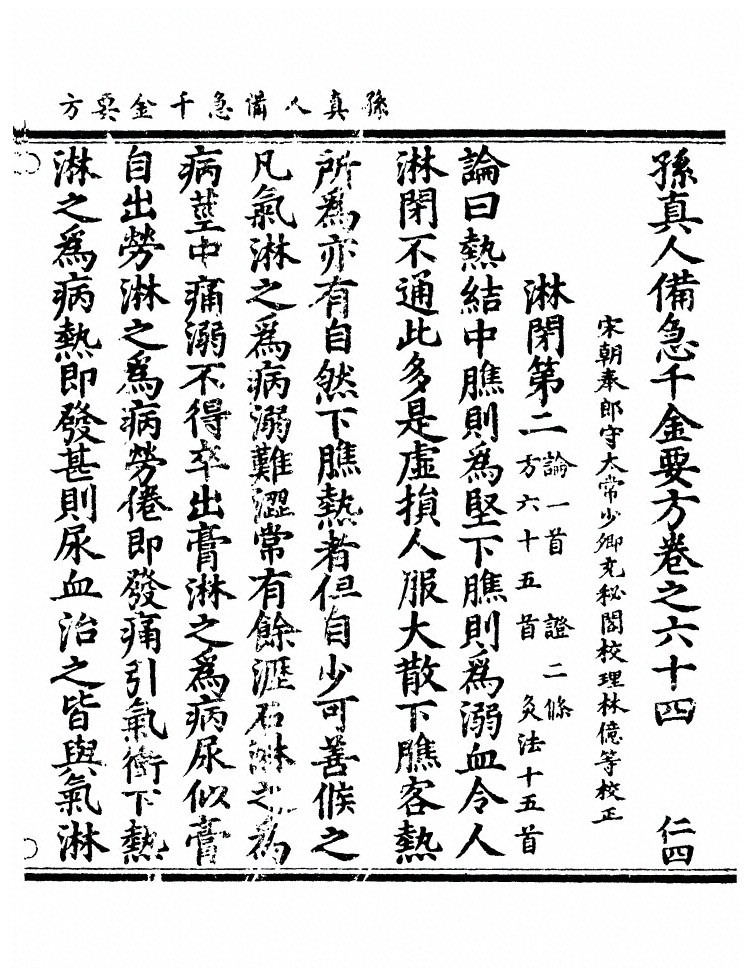 孫真人備急千金要方
孫真人備急千金要方卷之六十四 仁四
宋朝奉郎守太常少卿充秘閣校理林億等校正
淋閉第二 論一首 證二條
方六十五首 灸法十五首
論曰熱結中膲則為堅下膲則為溺血令人
淋閉不通此多是虛損人服大散下膲客熱
所為亦有自然下膲熱者但自少可善候之
凡氣淋之為病溺難澀常有餘瀝石淋之為
病莖中痛溺不得卒出膏淋之為病尿似膏
自出勞淋之為病勞倦即發痛引氣衝下熱
淋之為病熱即發甚則尿血治之皆與氣淋